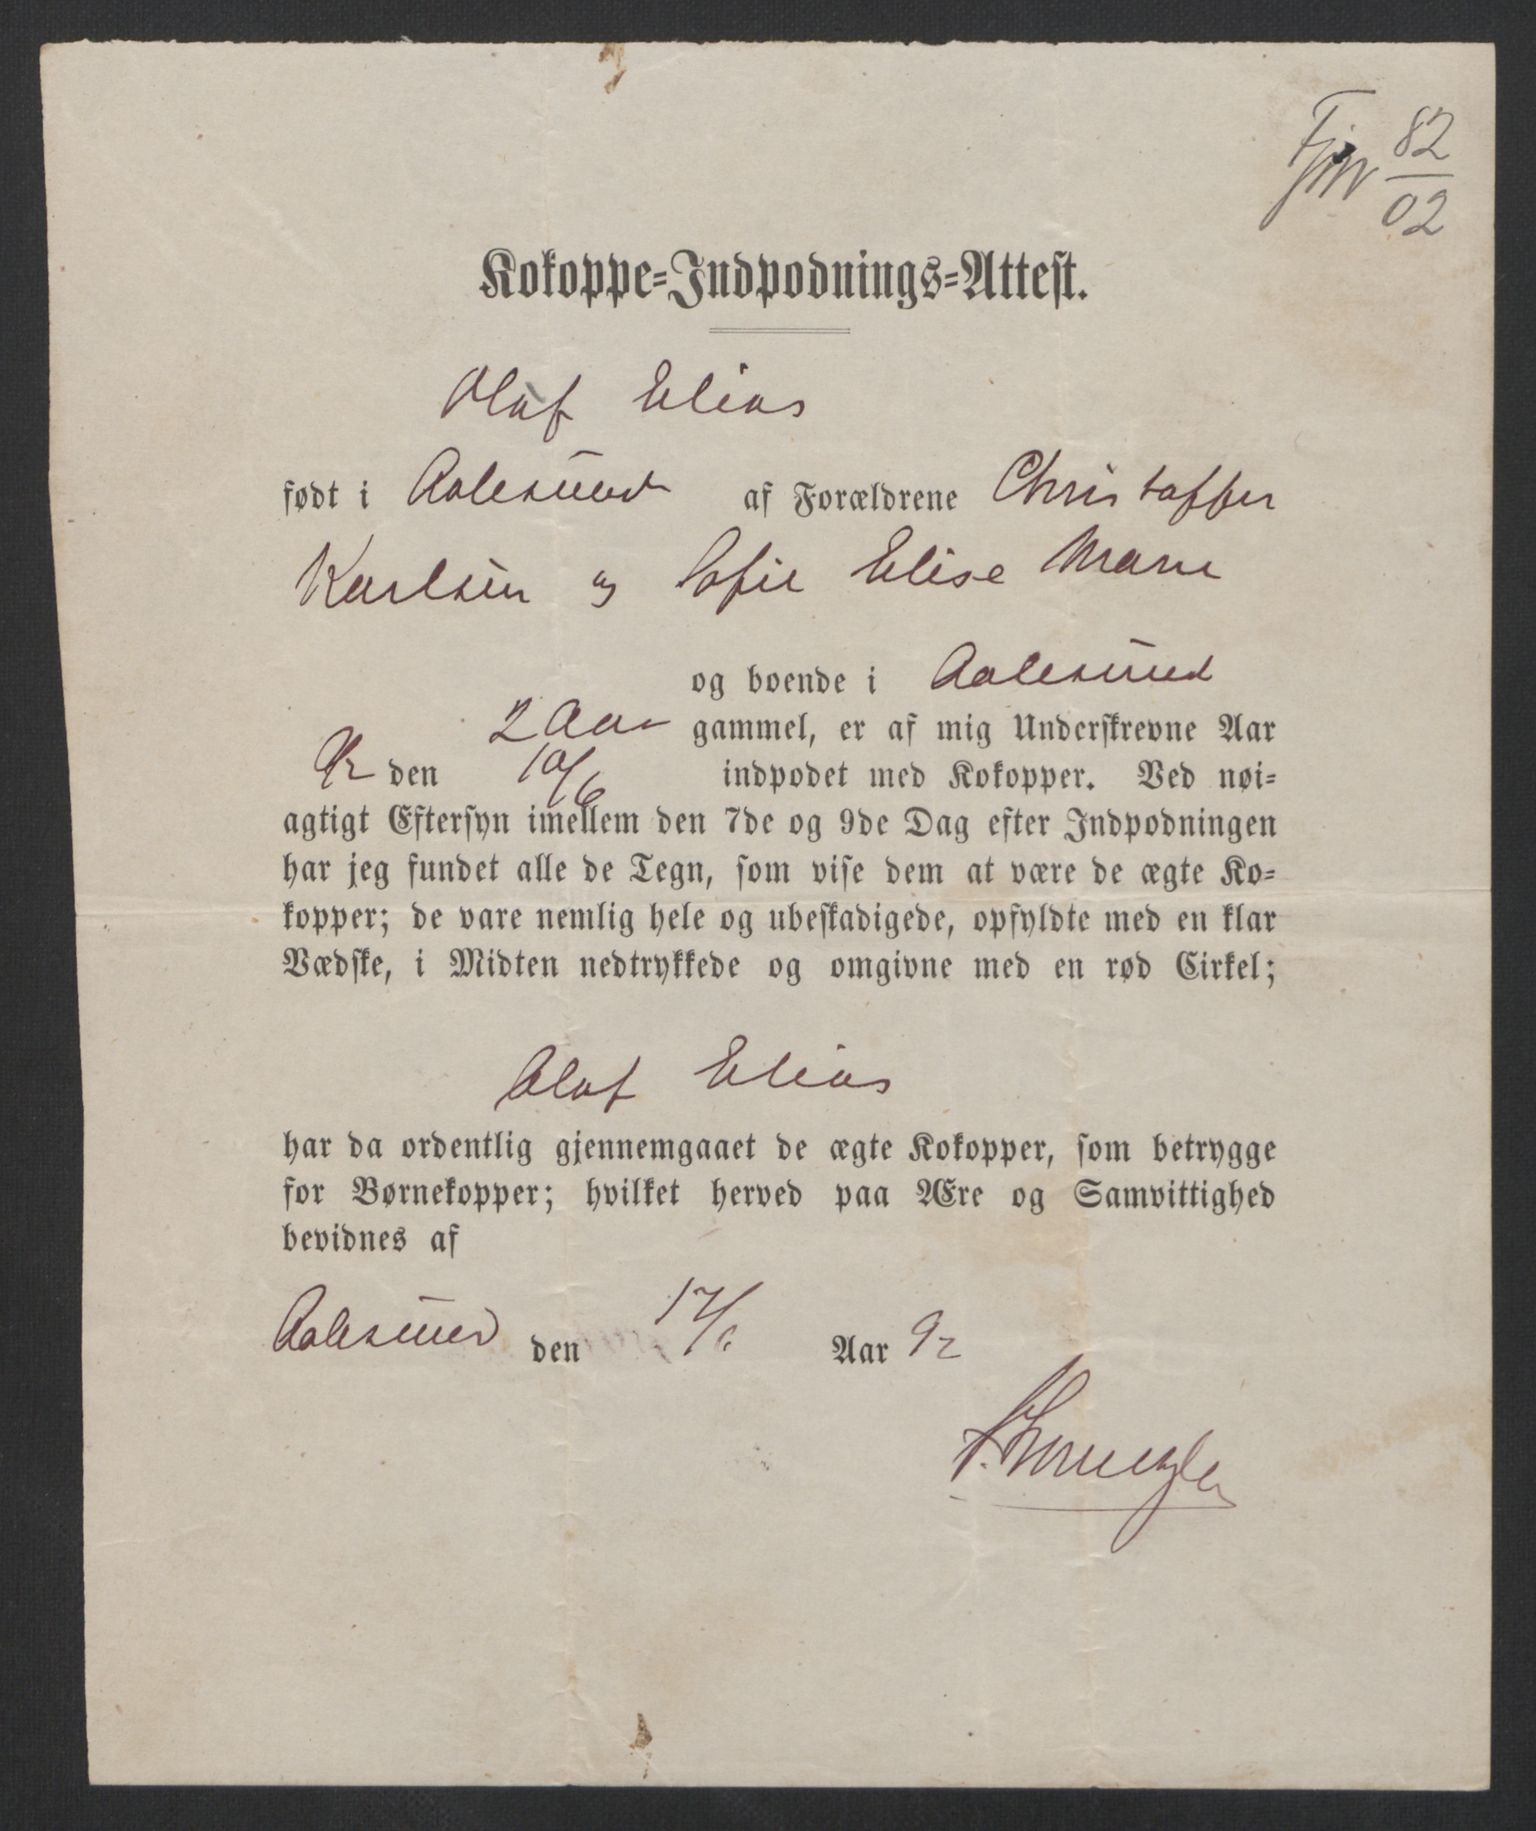 82
02
Kokoppe-Indpodnings-Attest.
Olaf Elias
født i Aalesund af Forældrene Christoffer
Karlsen og Sofie Elise Marie
og boende i Aalesund
2 Aar gammel, er af mig Underskrevne Aar
92 den 10/6 indpodet med Kokopper. Ved nøi-
agtigt Eftersyn imellem den 7de og 9de Dag efter Indpodningen
har jeg fundet alle de Tegn, som vise dem at være de ægte Ko-
kopper; de vare nemlig hele og ubeskadigede, opfyldte med en klar
Vædske, i Midten nedtrykkede og omgivne med en rød Cirkel;
Olaf Elias
har da ordentlig gjennemgaaet de ægte Kokopper, som betrygge
for Børnekopper; hvilket herved paa Ære og Samvittighed
bevidnes af
Aalesund den 17/6 Aar 92